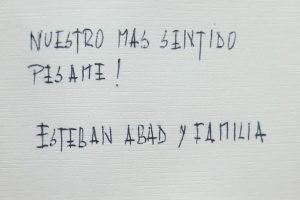 NUESTRO MAS SENTIDO
PESAME!
ESTEBAN ABAD Y FAMILIA